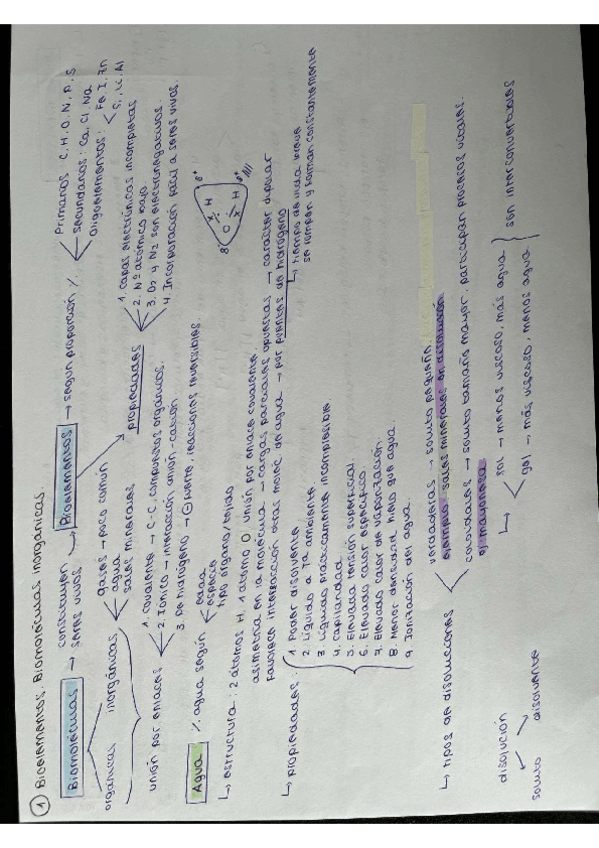 1 Bioelementos. Biomoléculas inorgánicas.
Biomoléculas → constituyen seres vivos → Bioelementos → según proporción %
Primarios C, H, O, N, P, S
Secundarios: Ca, Cl, Na
Oligoelementos: Fe, I, Zn
Si, Li, Al
orgánicas inorgánicas
gases → poco común
agua
sales minerales
propiedades
1. capas electrónicas incompletas
2. Nº atómico bajo
3. O2 y N2 son electronegativos
4. Incorporación fácil a seres vivos.
unión por enlaces
1. covalente → C-C, compuestos orgánicos.
2. Iónico → interacción anión-catión
3. De hidrógeno → ⊖ fuerte, reacciones reversibles.
Agua % agua según
edad
especie
tipo órgano/tejido
↳ estructura: 2 átomos H, 1 átomo O, unión por enlace covalente.
asimetría en la molécula → cargas parciales opuestas → carácter dipolar
favorece interacción otras moléc de agua → por puentes de hidrógeno
↳ tiempo de vida breve
se rompen y forman constantemente
O H H
↳ propiedades:
1. Poder disolvente.
2. Líquido a Tª ambiente
3. Líquido prácticamente incompresible.
4. capilaridad
5. Elevada tensión superficial.
6. Elevado calor específico.
7. Elevado calor de vaporización.
8. Menor densidad hielo que agua.
9. Ionización del agua.
↳ tipos de disoluciones
verdaderas → soluto pequeño
ejemplo: sales minerales en disolución
coloidales → soluto tamaño mayor, participan procesos vitales.
ej mayonesa
↳ sol → menos viscoso, más agua
gel → más viscoso, menos agua
son interconvertibles
disolución
soluto disolvente